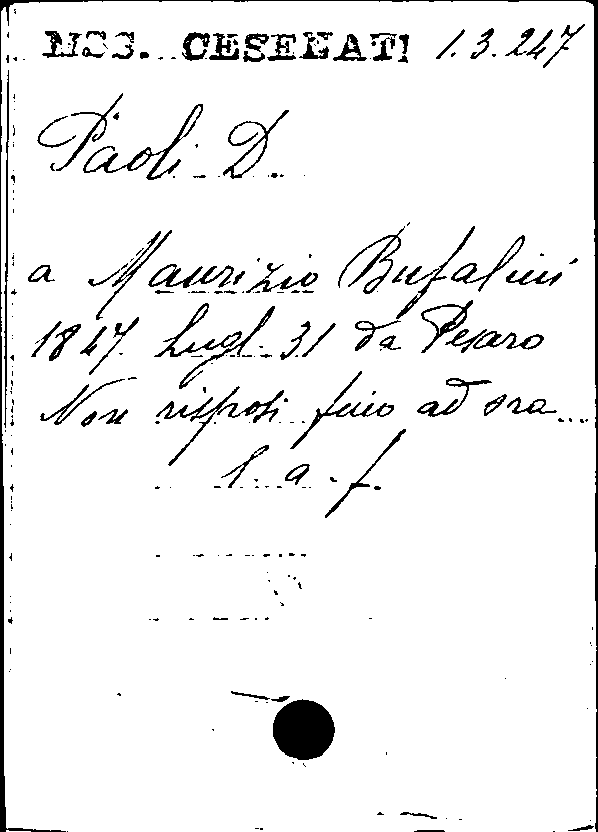 MSS. CESENATI 1.3.247
Paoli D.
a Maurizio Bufalini
1847 Lugl. 31 da Pesaro
Non risposi fino ad ora...
l. a. f.